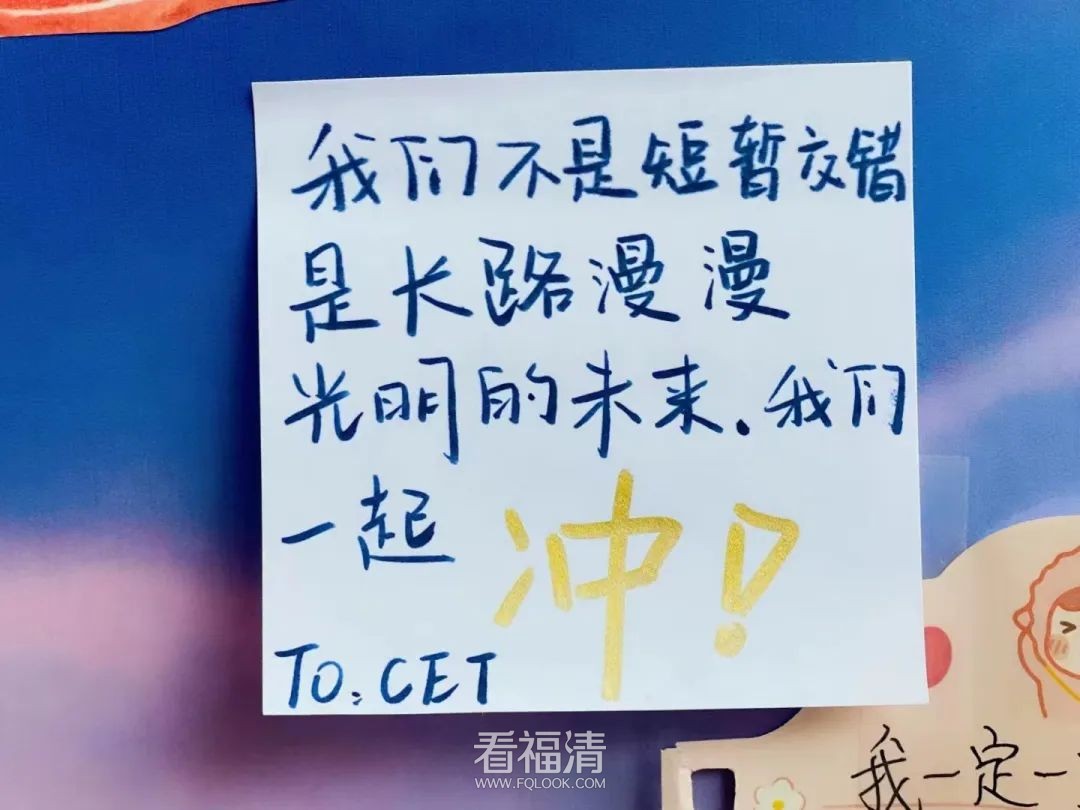 我们不是短暂交错
是长路漫漫
光明的未来.我们
一起 冲!
TO:CET
看福清
WWW.FQLOOK.COM
我一定一